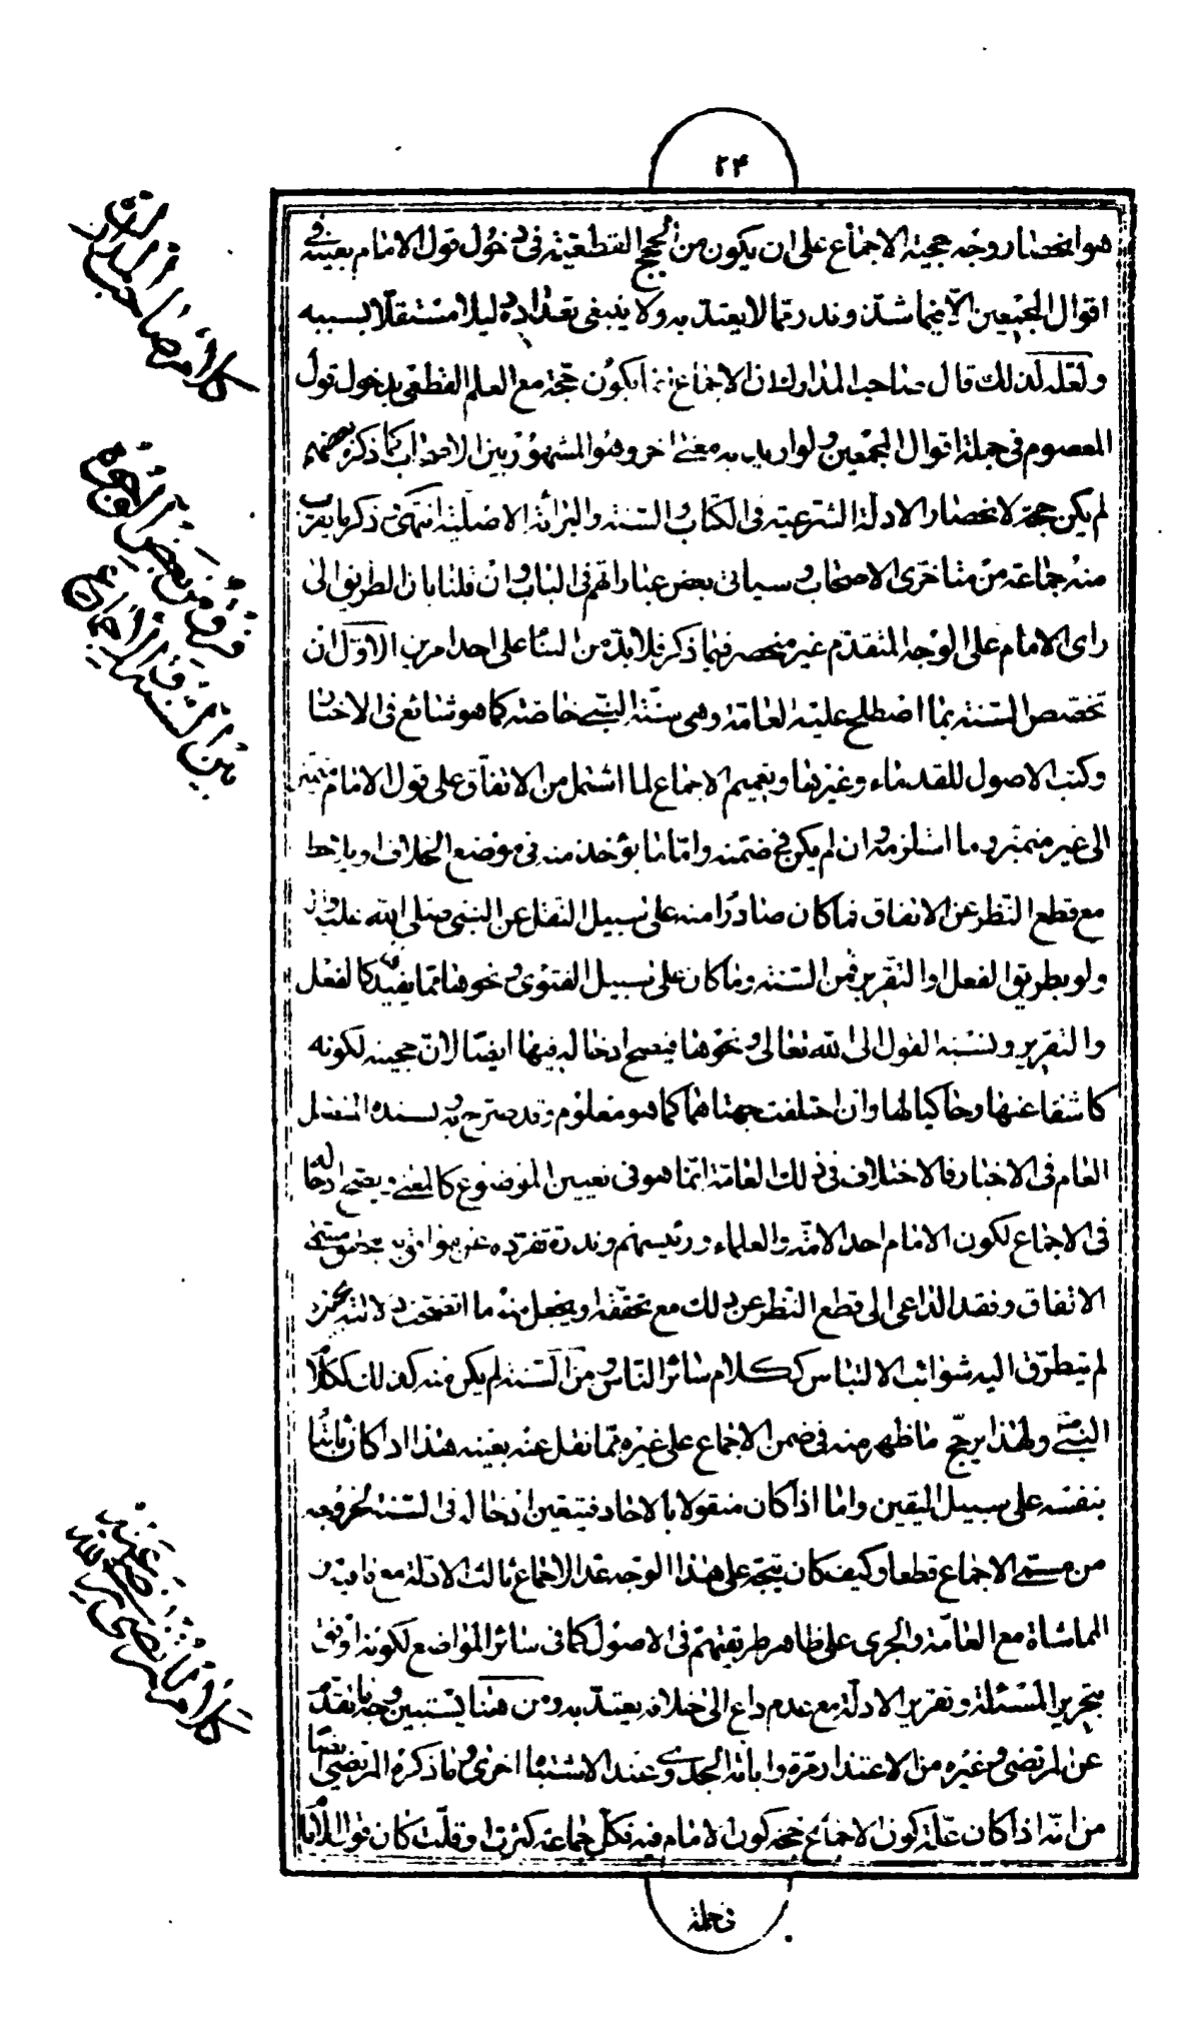 ۲۴
هو انحصار وجه حجية الاجماع على ان يكون من الحجج القطعية فى دخول قول الامام بعينه فى
اقوال المجمعين الا فيما شذ وندر مما لا يعتد به ولا ينبغى تعداده دليلا مستقلا بسببه
ولعله لذلك قال صاحب المدارك ان الاجماع انما يكون حجة مع العلم القطعى بدخول قول
المعصوم فى جملة اقوال المجمعين ولو اريد به معنى اخر وهو المشهور بين الاصحاب كما ذكره بعضهم
لم يكن حجة لانحصار الادلة الشرعية فى الكتاب والسنة والبرائة الاصلية انتهى ذكر ما يقرب
منه جماعة من متاخرى الاصحاب وسياتى بعض عباراتهم فى الباب وان قلنا بان الطريق الى
راى الامام على الوجه المتقدم غير منحصر فيما ذكر فلا بد من البناء على احد امرين الاول ان
تخصص السنة بما اصطلح عليه العامة وهى سنة النبى خاصة كما هو شائع فى الاخبار
وكتب الاصول للقدماء وغيرها وتعميم الاجماع لما اشتمل من الاتفاق على قول الامام
الى غير متميز وما استلزمه وان لم يكن فى ضمنه واما ما يؤخذ منه فى موضع الخلاف او يلاحظ
مع قطع النظر عن الاتفاق فما كان صادرا منه على سبيل النقل عن النبى صلى الله عليه واله
ولو بطريق الفعل او التقرير فمن السنة وما كان على سبيل الفتوى ونحوها مما يفيد كالفعل
والتقرير ونسبة القول الى الله تعالى ونحوها فيصح ادخاله فيها ايضا لان حجيته لكونه
كاشفا عنها وحاكيا لها وان اختلفت جهتاهما كما هو معلوم وقد صرح به بسنده المتصل
العام فى الاخبار فالاختلاف فى ذلك العامة انما هو فى تعيين الموضوع كالمعنى ويصح ادخاله
فى الاجماع لكون الامام احد الامة والعلماء ورئيسهم وندرة تفرده عن موافق به
الاتفاق وفقد الداعى الى قطع النظر عن ذلك مع تحققه ويجعل منه ما اتضحت دلالته بحيث
لم يتطرق اليه شوائب الالتباس ككلام سائر الناس ومن السنة لم يكن منه كذلك ككلام
النبى ولهذا يرجح ما ظهر منه فى ضمن الاجماع على غيره مما نقل عنه بعينه هذا اذ كان ثابتا
بنفسه على سبيل اليقين واما اذا كان منقولا بالاحاد فيتعين ادخاله فى السنة لخروجه
من مسمى الاجماع قطعا وكيف كان يتجه على هذا الوجه عد الاجماع ثالث الادلة مع ما فيه من
المماشاة مع العامة والجرى على ظاهر طريقتهم فى الاصول كما فى سائر المواضع لكونه اوفق
بتحرير المسئلة وتقرير الادلة مع عدم داع الى خلافه يعتد به ومن هنا يستبين وجه ما تقدم
عن المرتضى وغيره من الاعتذار مرة وابانة الجدوى عند الاشتباه اخرى وما ذكره المرتضى ايضا
من انه اذا كان علة كون الاجماع حجة كون الامام فيه فكل جماعة كثرت او قلت كان قول الامام
فى جملة
كلام صاحب المدارك
فرق من بعض الوجوه
بين السنة والاجماع
كلام المرتضى رضى الله عنه